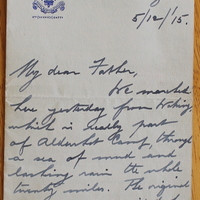 5/12/'15.
My dear Father,
We marched
here yesterday from Woking
which is really part
of Aldershot Camp, through
a sea of mud and
lashing rain the whole
twenty miles. The original